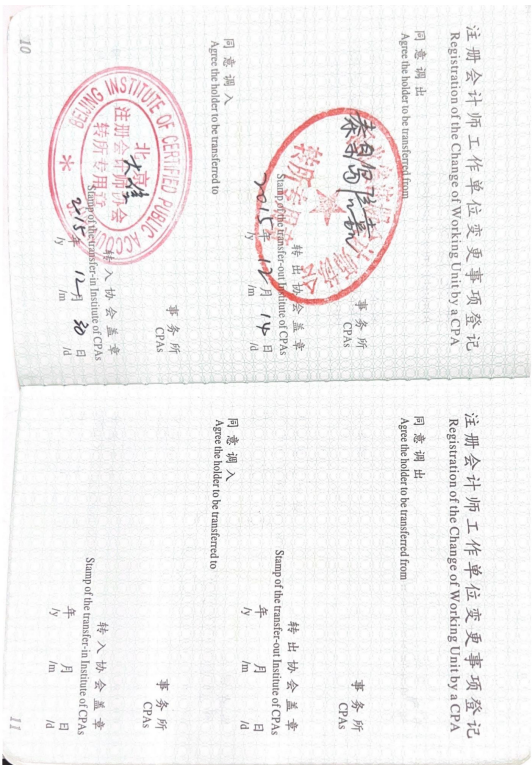 注册会计师工作单位变更事项登记
Registration of the Change of Working Unit by a CPA
同意调出
Agree the holder to be transferred from
事务所
CPAs
转出协会盖章
Stamp of the transfer-out Institute of CPAs
2015年 12月 14日
/y /m /d
同意调入
Agree the holder to be transferred to
事务所
CPAs
BEIJING INSTITUTE OF CERTIFIED PUBLIC
北京
注册会计师协会
转所专用章
转入协会盖章
Stamp of the transfer-in Institute of CPAs
2015年 12月 30日
/y /m /d
10
注册会计师工作单位变更事项登记
Registration of the Change of Working Unit by a CPA
同意调出
Agree the holder to be transferred from
事务所
CPAs
转出协会盖章
Stamp of the transfer-out Institute of CPAs
年 月 日
/y /m /d
同意调入
Agree the holder to be transferred to
事务所
CPAs
转入协会盖章
Stamp of the transfer-in Institute of CPAs
年 月 日
/y /m /d
11